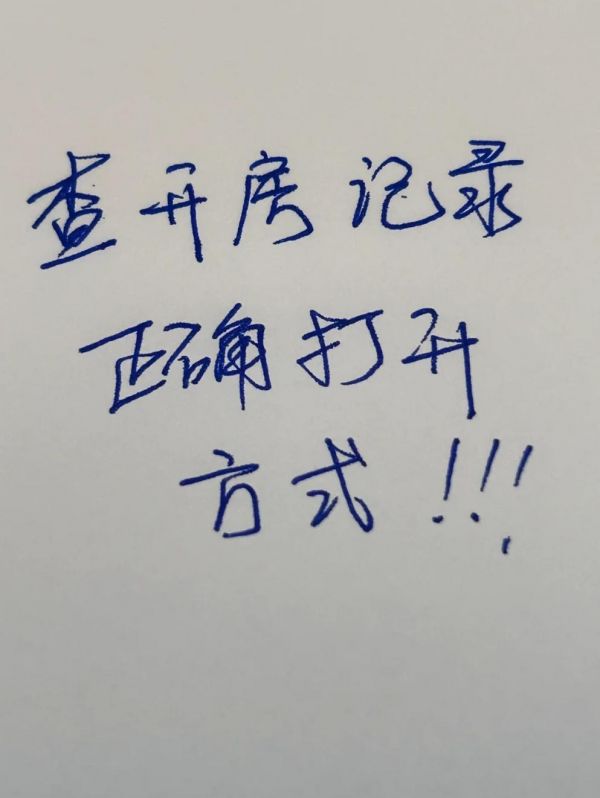 查开房记录
正确打开
方式!!!